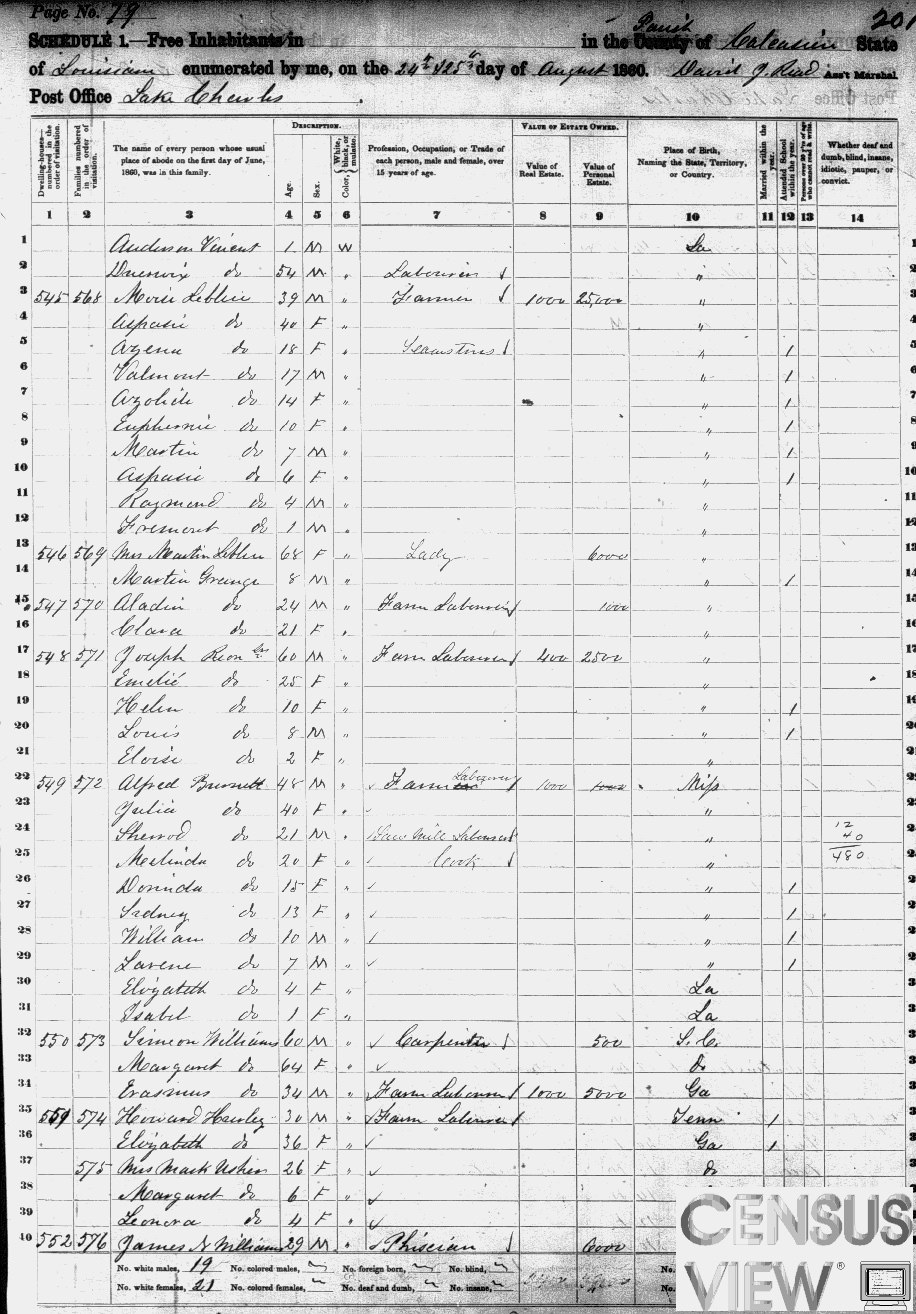 Page No. 79
201
SCHEDULE 1.—Free Inhabitants in in the County of Parish Calcasieu State
of Louisiana enumerated by me, on the 24th & 25th day of August 1860. David J. Read Ass't Marshal
Post Office Lake Charles
Dwelling-houses—numbered in the order of visitation.
Families numbered in the order of visitation.
The name of every person whose usual place of abode on the first day of June, 1860, was in this family.
DESCRIPTION.
Age.
Sex.
Color, White, black, or mulatto.
Profession, Occupation, or Trade of each person, male and female, over 15 years of age.
VALUE OF ESTATE OWNED.
Value of Real Estate.
Value of Personal Estate.
Place of Birth, Naming the State, Territory, or Country.
Married within the year.
Attended School within the year.
Persons over 20 y'rs of age who cannot read & write.
Whether deaf and dumb, blind, insane, idiotic, pauper, or convict.
1 2 3 4 5 6 7 8 9 10 11 12 13 14
1 Anderson Vincent 1 M W La
2 do 54 M " Labourer "
3 545 568 Moise Leblue 39 M " Farmer 1000 25,000 "
4 Aspasie do 40 F " "
5 Azena do 18 F " Seamstress " /
6 Valmont do 17 M " " /
7 Azolide do 14 F " " /
8 Euphemie do 10 F " " /
9 Martin do 7 M " " /
10 Aspasie do 6 F " " /
11 Raymond do 4 M " "
12 Fremont do 1 M " "
13 546 569 Mrs Martin Leblue 68 F " Lady 6000 "
14 Martin Grange 8 M " " /
15 547 570 Aladin do 24 M " Farm Labourer 1000 "
16 Clara do 21 F " "
17 548 571 Joseph Reon Snr 60 M " Farm Labourer 400 2500 "
18 Emelié do 25 F " "
19 Helen do 10 F " " /
20 Louis do 8 M " " /
21 Eloise do 2 F " "
22 549 572 Alfred Burnett 48 M " Farm Labourer 1000 1000 Miss
23 Julia do 40 F " "
24 Sherrod do 21 M " Saw Mill Labourer " 12
40
25 Meslinda do 20 F " Cook " 480
26 Dorinda do 15 F " " /
27 Sidney do 13 F " " /
28 William do 10 M " " /
29 Lavene do 7 M " " /
30 Elizabeth do 4 F " La
31 Isabel do 1 F " La
32 550 573 Simeon Williams 60 M " Carpenter 500 S. C.
33 Margaret do 64 F " do
34 Erasmus do 34 M " Farm Labourer 1000 5000 Ga
35 551 574 Howard Hawley 30 M " Farm Labourer Tenn /
36 Elizabeth do 36 F " Ga /
37 575 Mrs Mark Usher 26 F " do
38 Margaret do 6 F "
39 Leonora do 4 F "
40 552 576 James N Williams 29 M " Phiscian 6000
No. white males, 19 No. colored males, No. foreign born, No. blind,
No. white females, 21 No. colored females, No. deaf and dumb, No. insane,
CENSUS
VIEW®